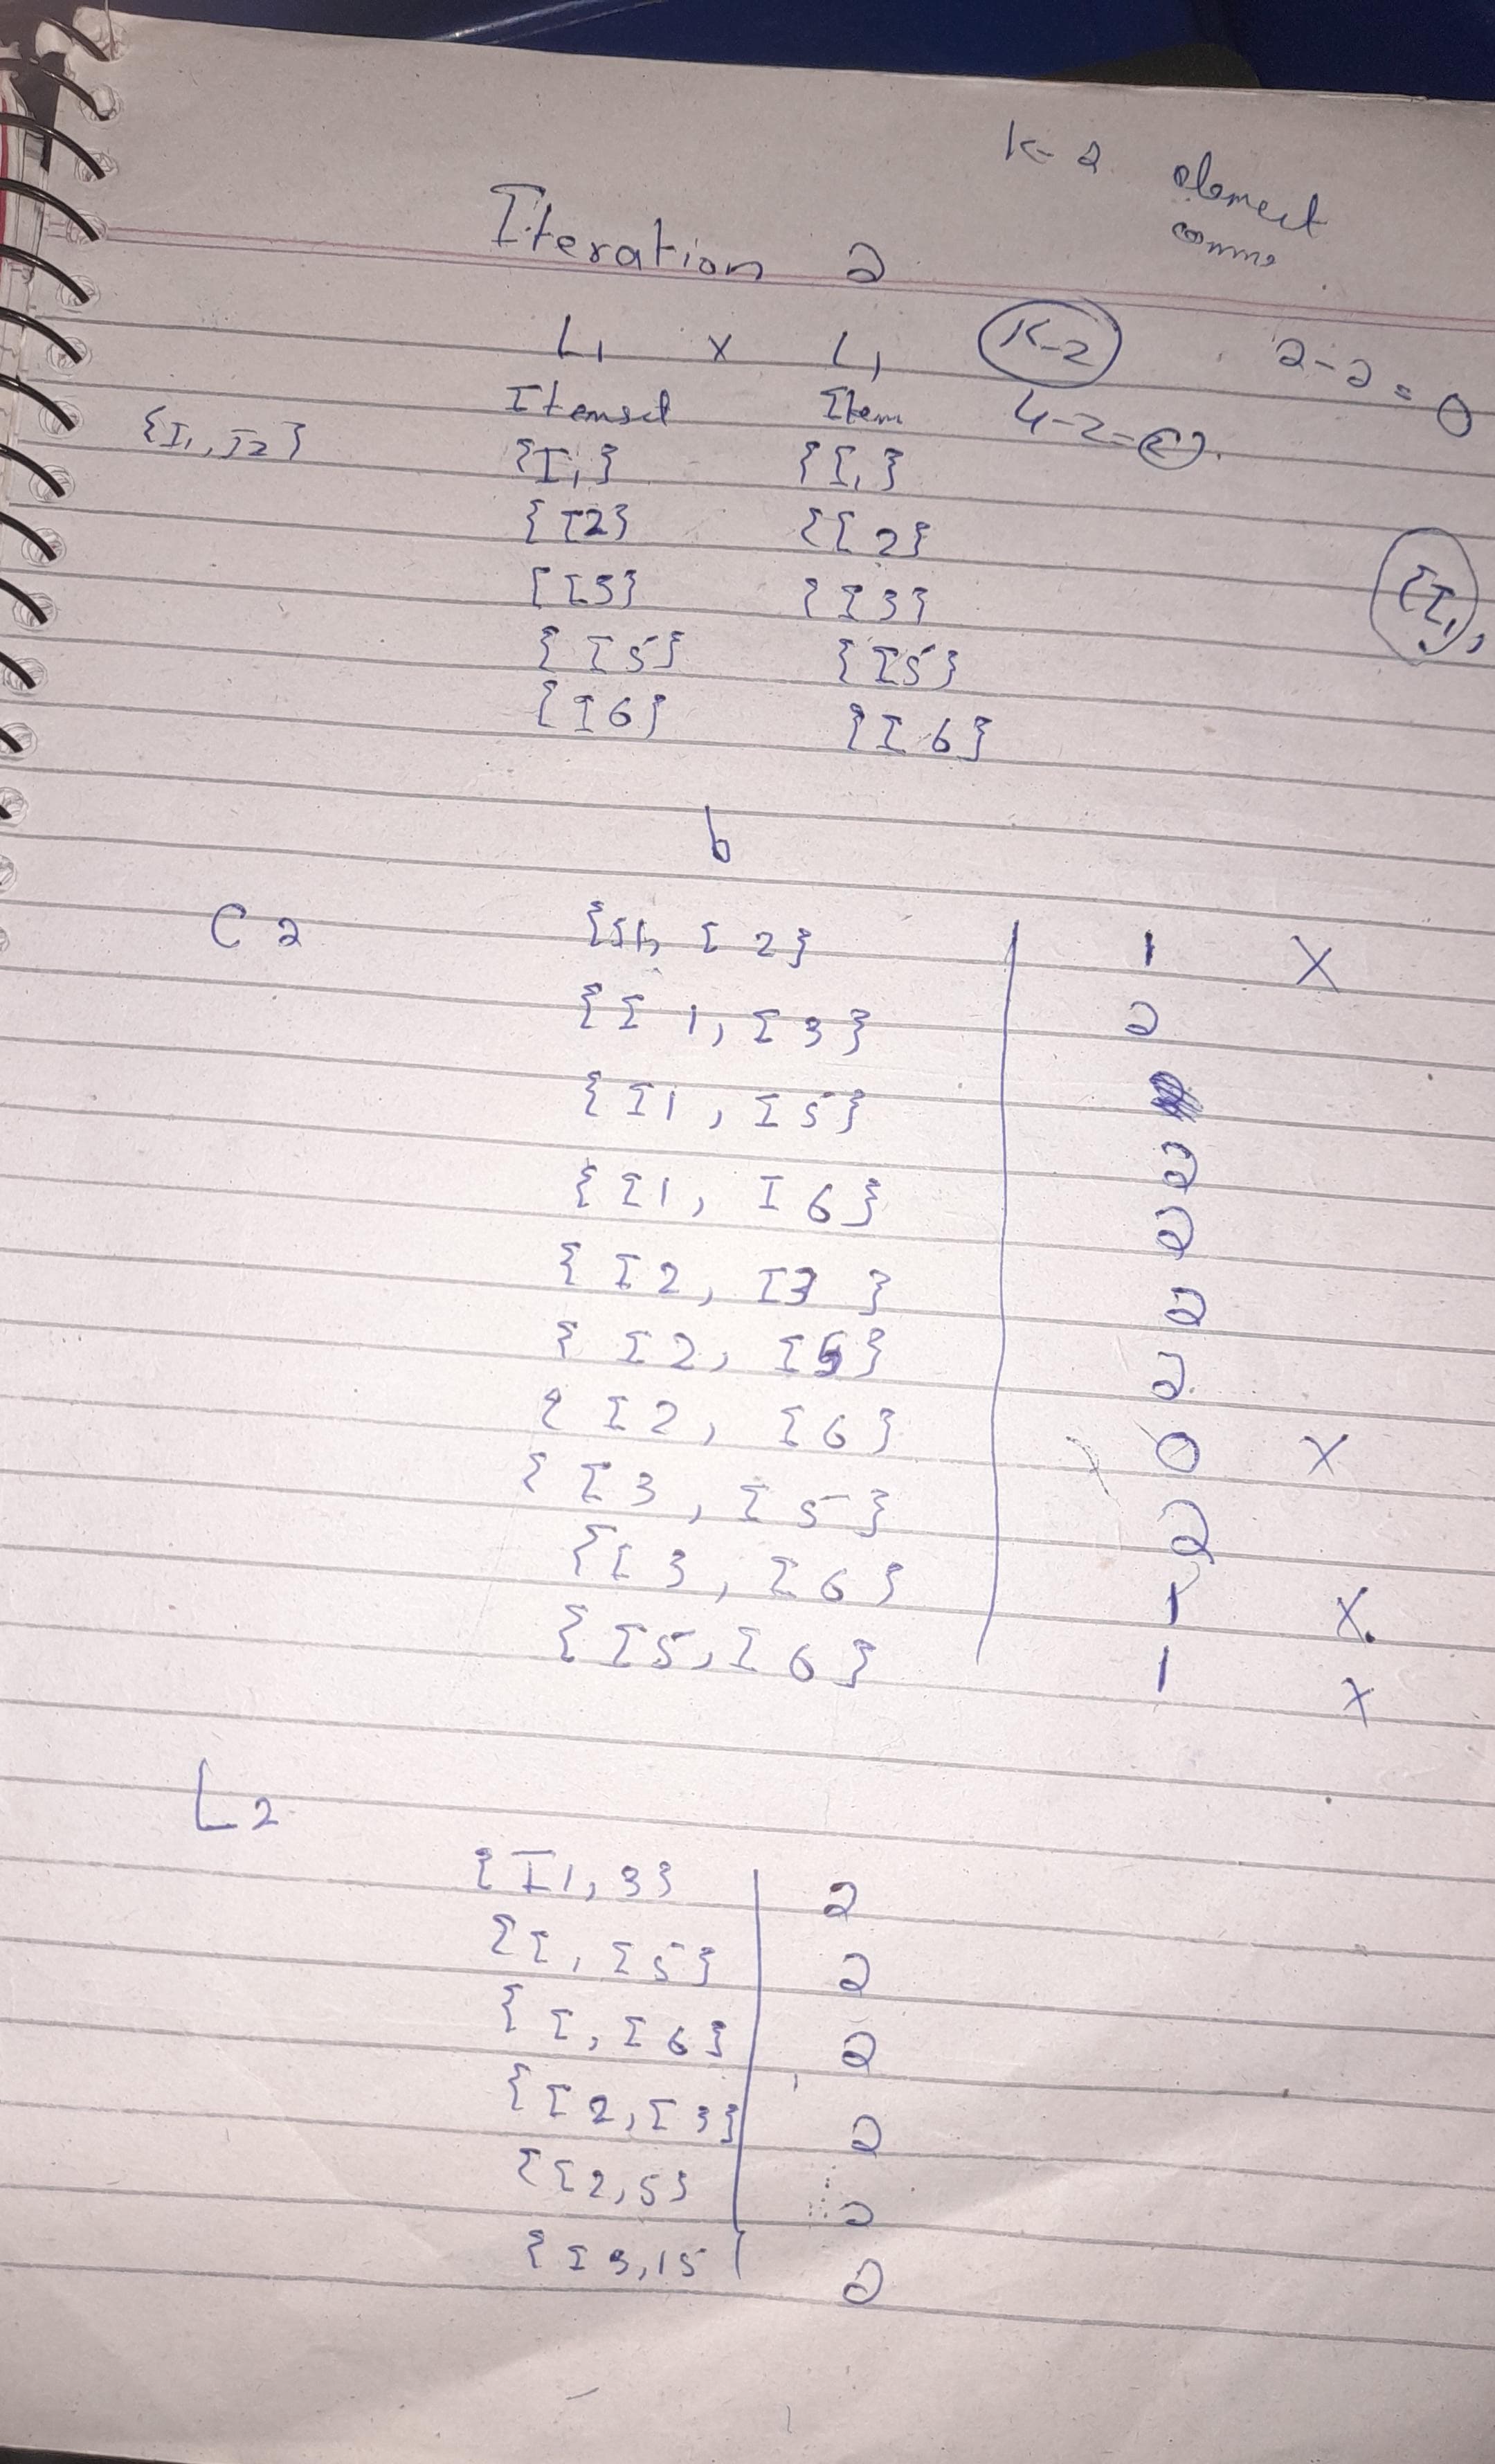 K-2 element
comm
Iteration 2
L1 x L1 K-2 2-2=0
Itemset Item 4-2=2
{I1, I2} {I1} {I1}
{I2} {I2}
{I3} {I3} {I1,
{I5} {I5}
{I6} {I6}
b
C2 {I1, I2} 1 X
{I1, I3} 2
{I1, I5}
{I1, I6} 2
2
{I2, I3} 2
{I2, I5} 2
{I2, I6} 0 X
{I3, I5} 2
{I3, I6} 1 X
{I5, I6} 1 X
L2
{I1, 3} 2
{I, I5} 2
{I, I6} 2
{I2, I3} 2
{I2, 5} 2
{I3, 15 2